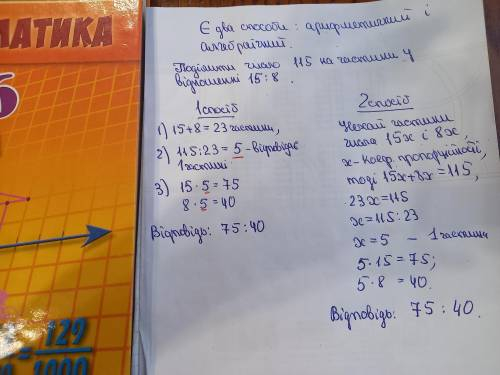 МАТИКА
6
129
= 
1000
Є два способи: арифметичний і
алгебраїчний.
Поділити число 115 на частини у
відношенні 15:8.
1 спосіб
1) 15+8=23 частини,
2) 115:23=5 - відповідає
1 частині
3) 15·5=75
8·5=40
Відповідь: 75:40
2 спосіб
Нехай частини
числа 15х і 8х,
х - коеф. пропорційності,
тоді 15х+8х=115,
23х=115
х=115:23
х=5 - 1 частина
5·15=75;
5·8=40.
Відповідь: 75:40.